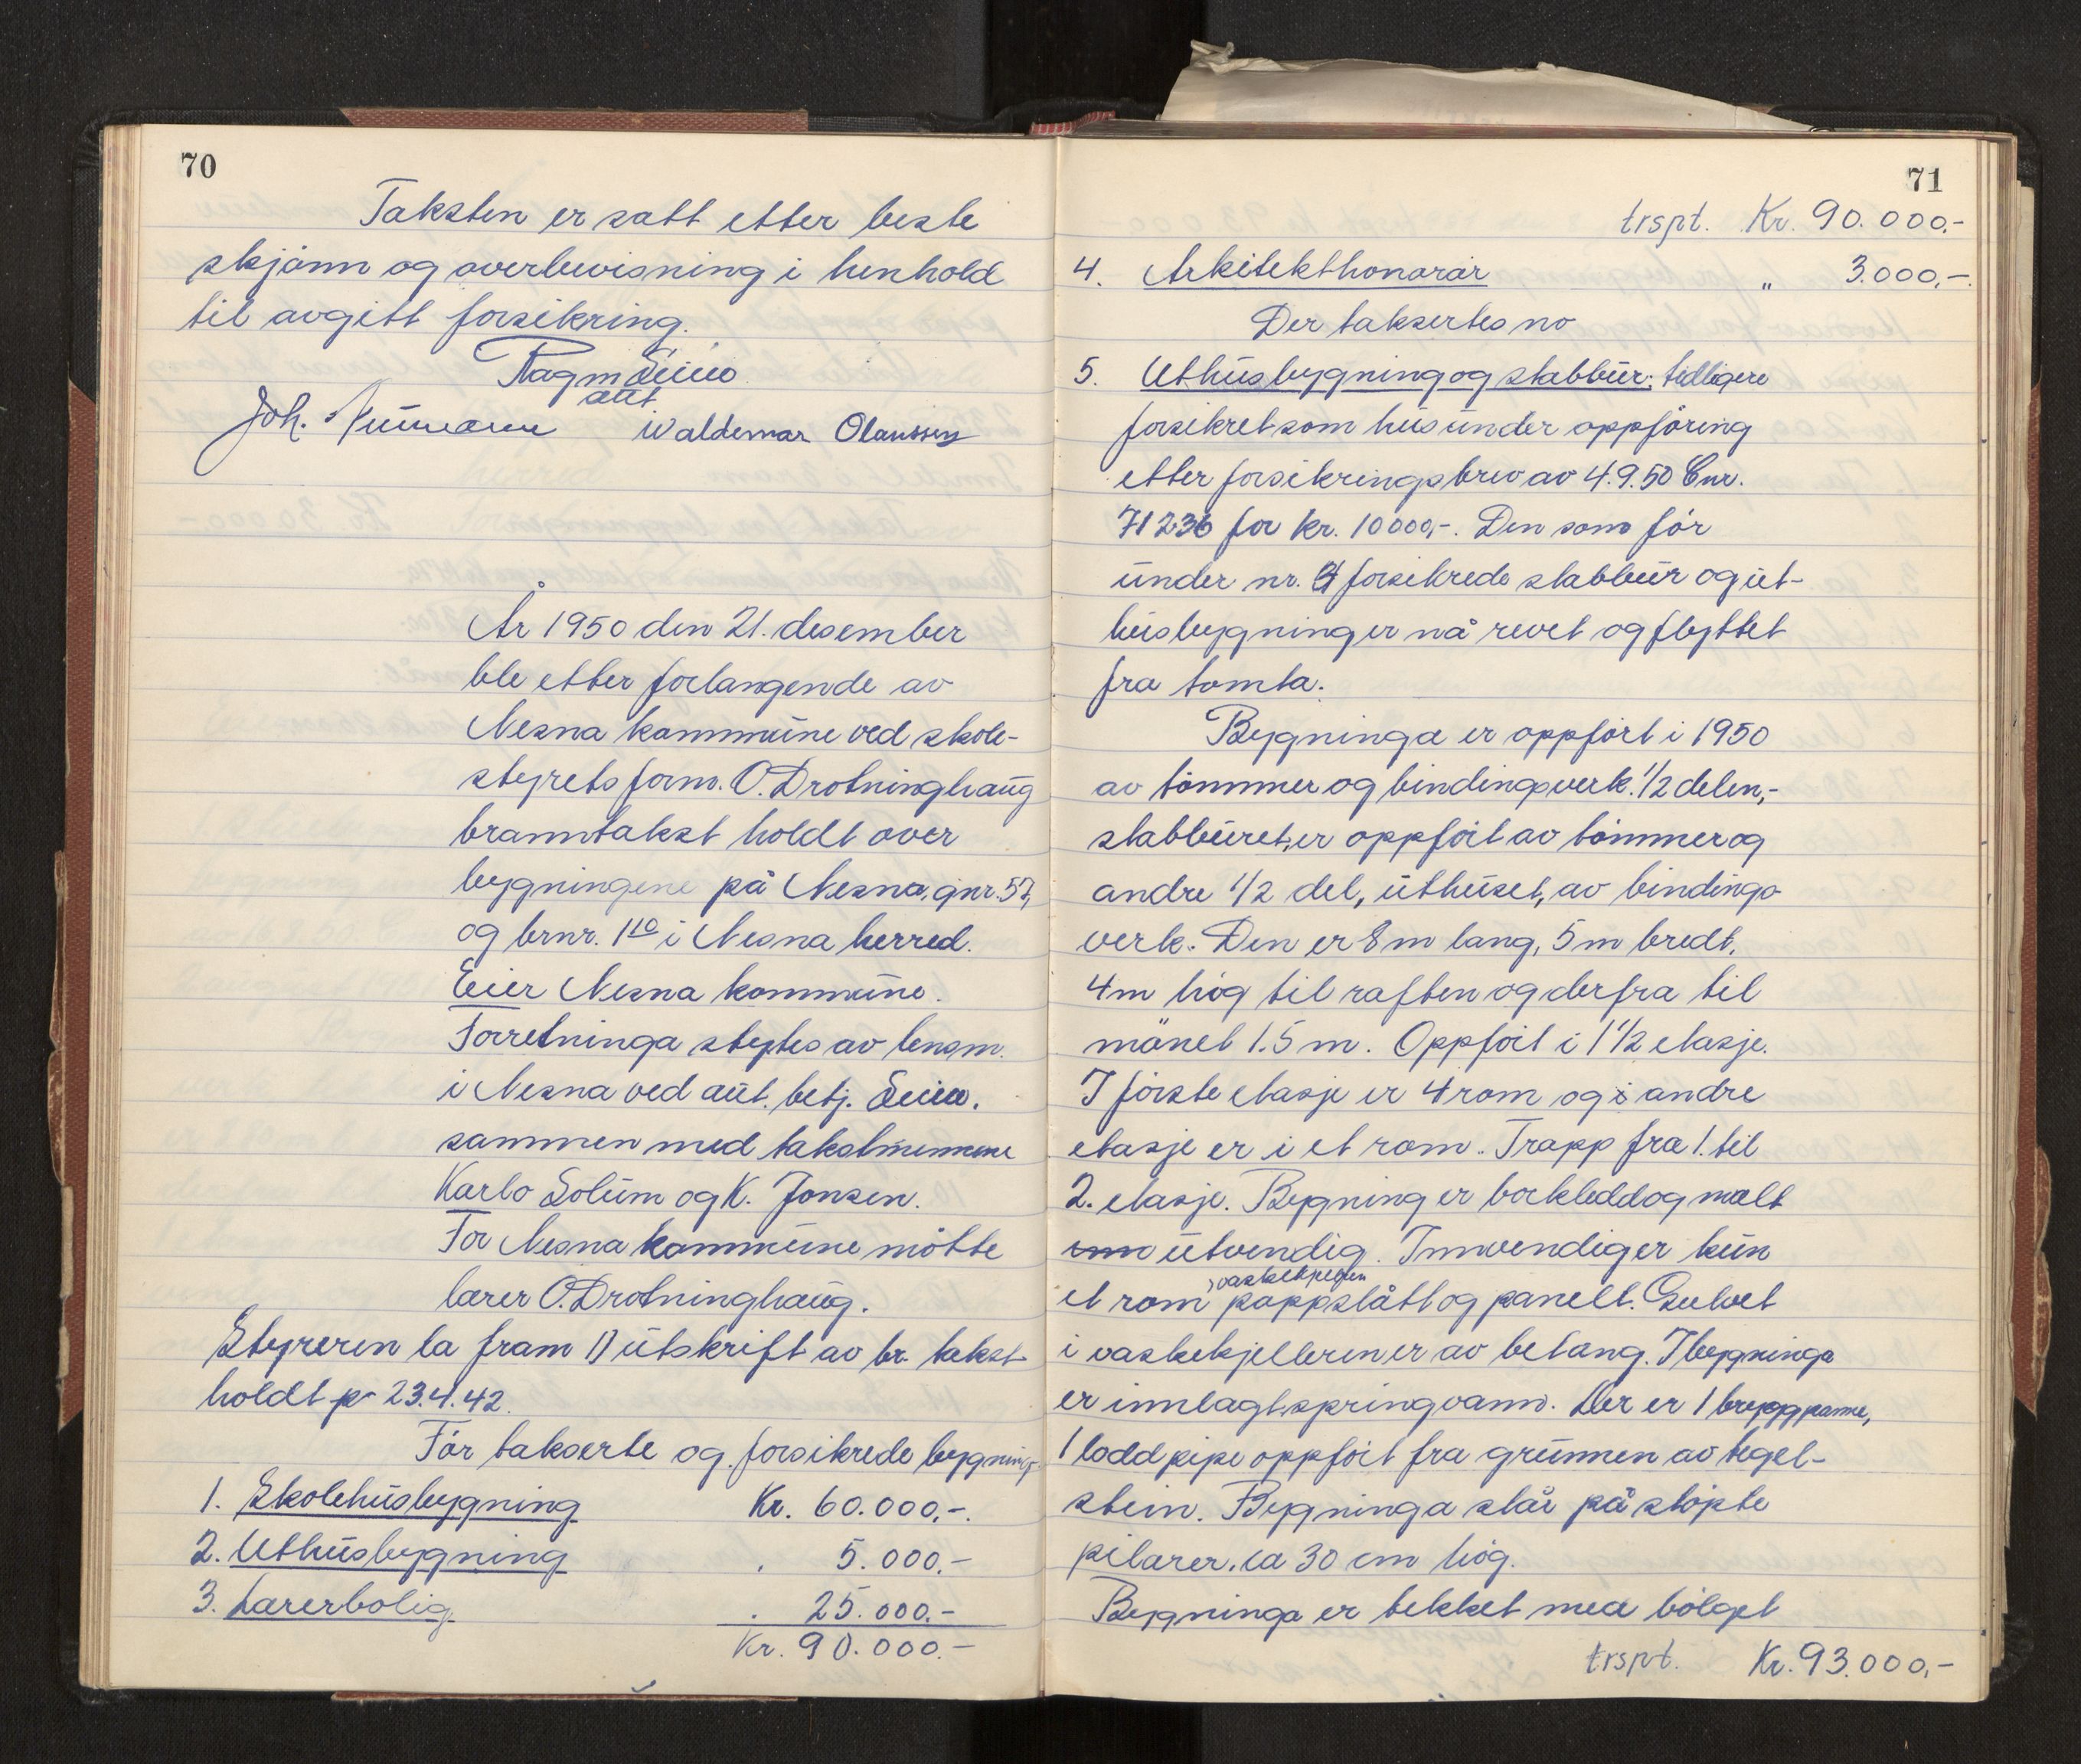 70
Taksten er satt etter beste
skjønn og overbevisning i henhold
til avgitt forsikring.
Ragm
aut
Joh. Waldemar Olaussen
År 1950 den 21. desember
ble etter forlangende av
Nesna kommune ved skole-
styrets form. O. Drotninghaug
branntakst holdt over
bygningene på Nesna, gnr. 57,
og brnr. 110 i Nesna herred.
Eier Nesna kommune.
Forretninga styrtes av lensm.
i Nesna ved aut. betj.
sammen med takstmennene
Karlo Solum og K. Jonsen.
For Nesna kommune møtte
lærer O. Drotninghaug.
Styreren la fram 1) utskrift av br. takst
holdt p 23.4.42.
Før takserte og forsikrede bygning.
1. Skolehusbygning Kr. 60.000,-.
2. Uthusbygning " 5.000,-
3. Lærerbolig " 25.000.-
Kr. 90.000.-
71
trspt. Kr. 90.000,-
4. Arkitekthonorar " 3.000,-.
Der taksertes no
5. Uthusbygning og stabbur; tidligere
forsikret som hus under oppføring
etter forsikringsbrev av 4.9.50 Cnr.
71236 for kr. 10000,-. Den som før
under nr. 4 forsikrede stabbur og ut-
husbygning er nå revet og flyttet
fra tomta.
Bygninga er oppført i 1950
av tømmer og bindingsverk. 1/2 delen,-
stabburet, er oppført av tømmer og
andre 1/2 del, uthuset, av bindings-
verk. Den er 8 m lang, 5 m bredt,
4 m høg til raften og derfra til
mønet 1.5 m. Oppført i 1 1/2 etasje.
I første etasje er 4 rom og i andre
etasje er i et rom. Trapp fra 1. til
2. etasje. Bygning er bordkledd og malt
inn utvendig. Innvendig er kun
et rom, vaskekjelleren pappslått og panelt. Gulvet
i vaskekjelleren er av betong. I bygninga
er innlagt springvann. Der er 1 bryggpanne,
1 lødd pipe oppført fra grunnen av tegel-
stein. Bygninga står på støpte
pilarer, ca 30 cm høg.
Bygninga er tekket med bølget
trspt. Kr. 93.000,-